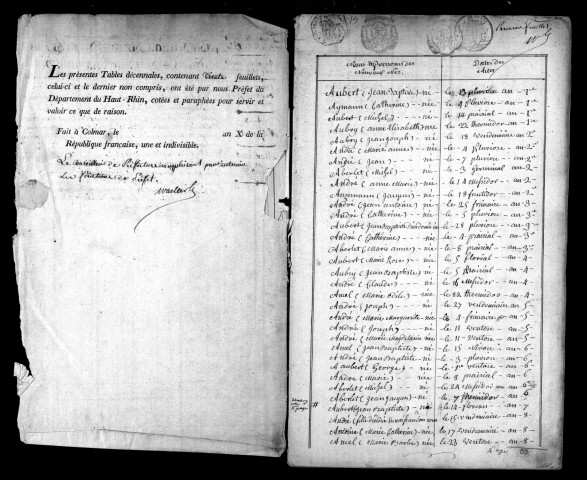 Les présentes Tables décennales, contenant trente feuillets,
celui-ci et le dernier non compris, ont été par nous Préfet du
Département du Haut-Rhin, cotées et paraphées pour servir et
valoir ce que de raison.
Fait à Colmar, le an X de la
République française, une et indivisible.
Le Conseiller de Préfecture remplissant par interim
Les fonctions de Préfet.
Premier feuillet
Noms et prénoms des Nouveaux Nés. Dates des Actes
Aubert (Jean Baptiste) né le 13 pluviose - an - 1er
Aymann (Catherine) - née le 4 pluviose - an - 1er
Aubert (Michel) né le 14 prairial - an - 1er
Aubry (anne Elisabeth) née le 22 thermidor - an - 1er
Aubry (jean joseph) né le 18 vendemiaire an 2
André (Marie anne) née le 4 pluviose - an - 2
André (Jean) né le 7 pluviose - an - 2
Aberlet (Michel) né le 3 germinal an - 2
André (anne Marie) née le 14 Messidor - an - 2
Ansemann (jacques) né le 18 fructidor - an - 2
André (jean antoine) né le 25 frimaire - an - 3
André (Catherine) née le 5 pluviose - an - 3
Aubert né le 28 pluviose - an - 3
André (Catherine) née le 4 prairial - an - 3
Aberlet (Marie anne) née le 8 prairial - an - 3
Aubert (Marie Rose) née le 5 floréal - an - 4
Aubry (jean Baptiste) né le 5 Prairial - an - 4
André (Claude) né le 16 Messidor - an - 4
Amel (Marie Odile) née le 22 thermidor - an - 4
André (joseph) né le 27 vendemiaire an - 5
André (Marie Marguerite) née le 4 frimaire an - 5
André (Joseph) né le 11 ventose - an - 5
André (Marie Magdelaine) née le 11 ventose - an - 5
Amel (Jean Baptiste) né le 15 nivose - an - 6
André (jean Baptiste) né le 3 pluviose - an - 6
Aaubert (George) né le 1er ventose - an - 6
André (Marie) née le 8 prairial - an - 6
Aberlet (Michel) né le 24 Messidor - an 6
Aberlet (jean jacques) né le 7 thermidor an 6
Aubert (jean Baptiste) né le 14 floréal - an - 7
André le 15 vendemiaire - an - 8
Antoine (Marie Catherine) née le 17 vendemiaire - an - 8
Amel (Marie Barbe) née le 23 ventose - an - 8
33